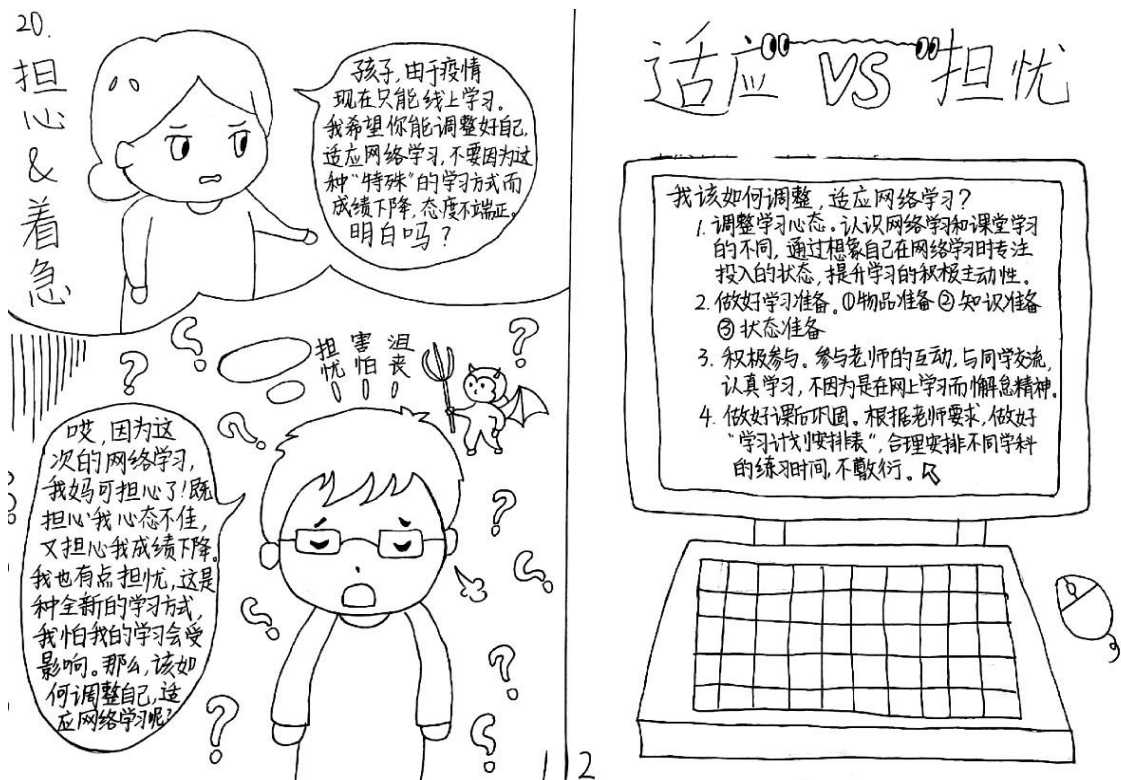 20.
担心&着急
孩子,由于疫情
现在只能线上学习。
我希望你能调整好自己,
适应网络学习,不要因为这
种“特殊”的学习方式而
成绩下降,态度不端正。
明白吗?
担忧
害怕
沮丧
哎,因为这
次的网络学习,
我妈可担心了!既
担心我心态不佳,
又担心我成绩下降。
我也有点担忧,这是
种全新的学习方式,
我怕我的学习会受
影响。那么,该如
何调整自己,适
应网络学习呢?
1
适应 VS 担忧
我该如何调整,适应网络学习?
1. 调整学习心态。认识网络学习和课堂学习
的不同,通过想象自己在网络学习时专注
投入的状态,提升学习的积极主动性。
2. 做好学习准备。①物品准备②知识准备
③状态准备
3. 积极参与。参与老师的互动,与同学交流,
认真学习,不因为是在网上学习而懈怠精神。
4. 做好课后巩固。根据老师要求,做好
“学习计划安排表”,合理安排不同学科
的练习时间,不敷衍。
2